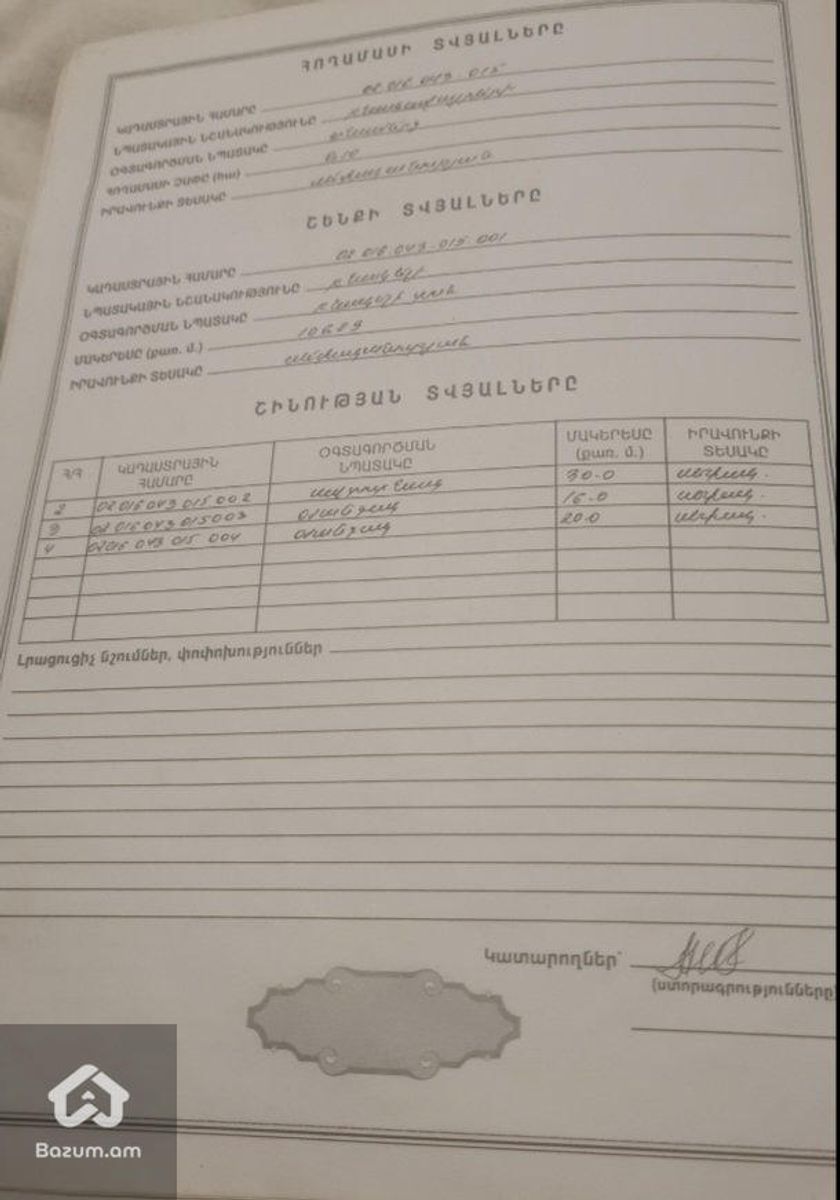 ՀՈՂԱՄԱՍԻ ՏՎՅԱԼՆԵՐԸ
ԿԱԴԱՍՏՐԱՅԻՆ ՀԱՄԱՐԸ 02 016 043 015
ՆՊԱՏԱԿԱՅԻՆ ՆՇԱՆԱԿՈՒԹՅՈՒՆԸ
ՕԳՏԱԳՈՐԾՄԱՆ ՆՊԱՏԱԿԸ
ՀՈՂԱՄԱՍԻ ՉԱՓԸ (հա) 0.10
ԻՐԱՎՈՒՆՔԻ ՏԵՍԱԿԸ
ՇԵՆՔԻ ՏՎՅԱԼՆԵՐԸ
ԿԱԴԱՍՏՐԱՅԻՆ ՀԱՄԱՐԸ 02 016 043 015 001
ՆՊԱՏԱԿԱՅԻՆ ՆՇԱՆԱԿՈՒԹՅՈՒՆԸ բնակելի
ՕԳՏԱԳՈՐԾՄԱՆ ՆՊԱՏԱԿԸ բնակելի տուն
ՄԱԿԵՐԵՍԸ (քառ. մ.)
ԻՐԱՎՈՒՆՔԻ ՏԵՍԱԿԸ
ՇԻՆՈՒԹՅԱՆ ՏՎՅԱԼՆԵՐԸ
Հ/Հ ԿԱԴԱՍՏՐԱՅԻՆ ՀԱՄԱՐԸ ՕԳՏԱԳՈՐԾՄԱՆ ՆՊԱՏԱԿԸ ՄԱԿԵՐԵՍԸ (քառ. մ.) ԻՐԱՎՈՒՆՔԻ ՏԵՍԱԿԸ
2 02 016 043 015 002 ավտոտնակ 30.0 սեփակ.
3 02 016 043 015 003 օժանդակ 16.0 սեփակ.
4 02 016 043 015 004 օժանդակ 20.0 սեփակ.
Լրացուցիչ նշումներ, փոփոխություններ
Կատարողներ՝
(ստորագրությունները)
Bazum.am